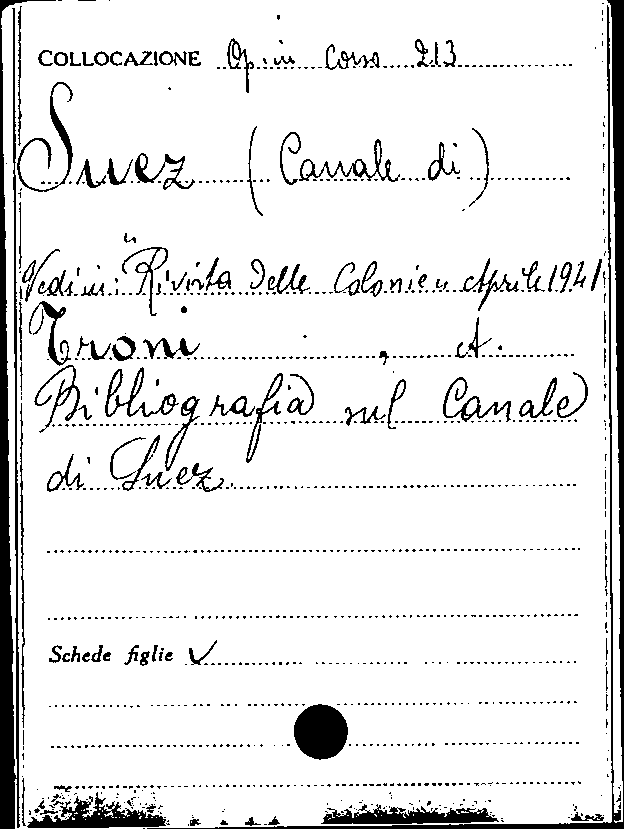 COLLOCAZIONE Op. in Corso 213
Suez (Canale di)
Vedi in: "Rivista delle Colonie" Aprile 1941
Troni, A.
Bibliografia sul Canale
di Suez.
Schede figlie ✓